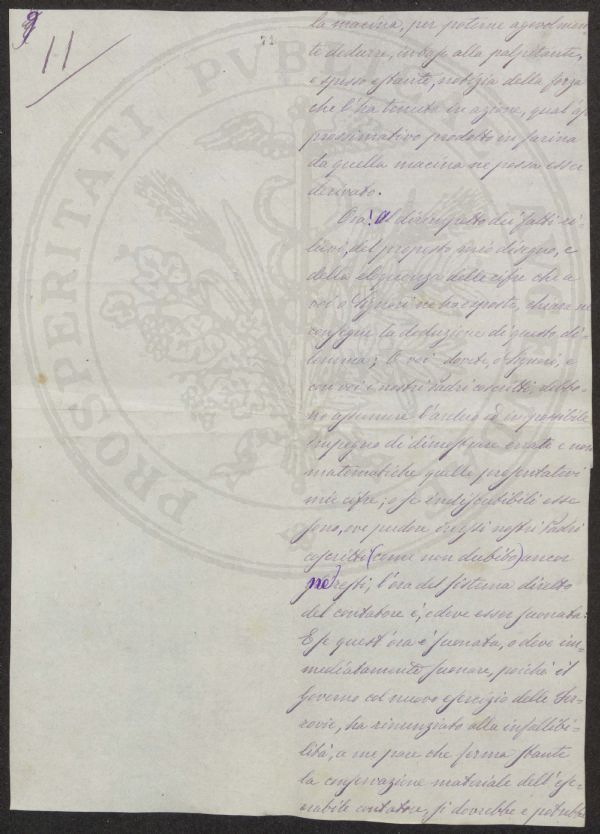 9
11
71
PROSPERITATI PUBLICAE
la macina, per poterne agevolmen-
te dedurre, in base alla palpitante,
e spesso estante, notizia della forza
che l'ha tenuta in azione, qual'ap
prossimativo prodotto in farina
da quella macina ne possa esser
derivato.
Ora! Al dirimpetto dei fatti ri-
lievi, del proposto mio disegno, e
della eloquenza delle cifre che a
voi o Signori ne ha esposta, chiara ne
consegue la deduzione di questo di-
lemma; O voi dovete, o Signori, e
con voi i nostri Padri coscritti, debbo-
no assumere l'arduo ed impossibile
impegno di dimostrare errate e non
matematiche quelle presentatevi
mie cifre; o se indiscutibili esse
sono, ove pudore in essi nostri Padri
coscritti (come non dubito) ancor
ne resti, l'ora del sistema diretto
del contatore è, e deve esser suonata.
E se quest'ora è suonata, o deve im-
mediatamente suonare, poiché il
Governo col nuovo esercizio delle Fer-
rovie, ha rinunziato alla infallibi-
lità, a me pare che ferma stante
la conservazione materiale dell'ese-
crabile contatore, si dovrebbe e potrebbe